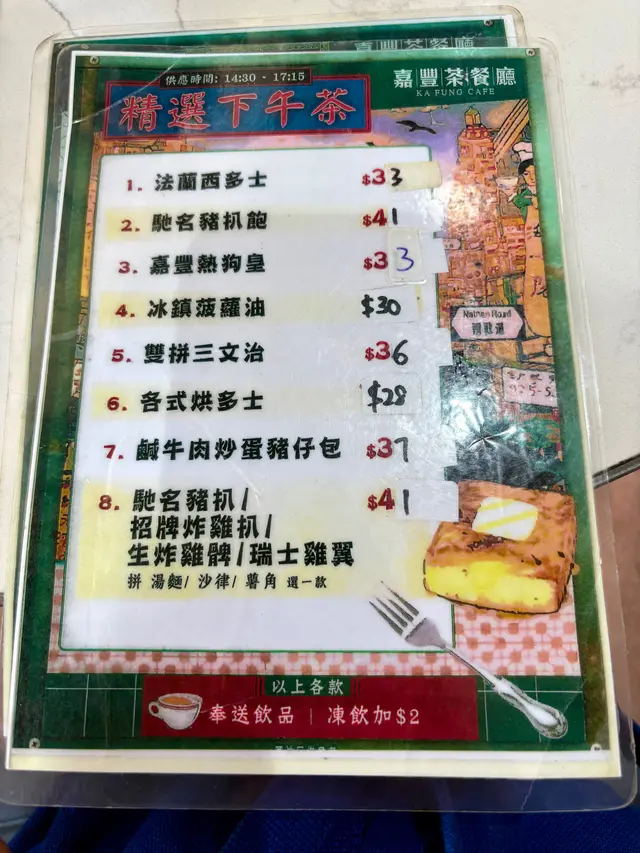 嘉豐茶餐廳
供應時間: 14:30 - 17:15
嘉豐茶餐廳
KA FUNG CAFE
精選下午茶
1. 法蘭西多士 $33
2. 馳名豬扒飽 $41
3. 嘉豐熱狗皇 $33
4. 冰鎮菠蘿油 $30
Nathan Road
彌敦道
5. 雙拼三文治 $36
6. 各式烘多士 $28
7. 鹹牛肉炒蛋豬仔包 $37
8. 馳名豬扒/ $41
招牌炸雞扒/
生炸雞髀/瑞士雞翼
拼 湯麵/ 沙律/ 薯角 選一款
以上各款
奉送飲品 | 凍飲加$2